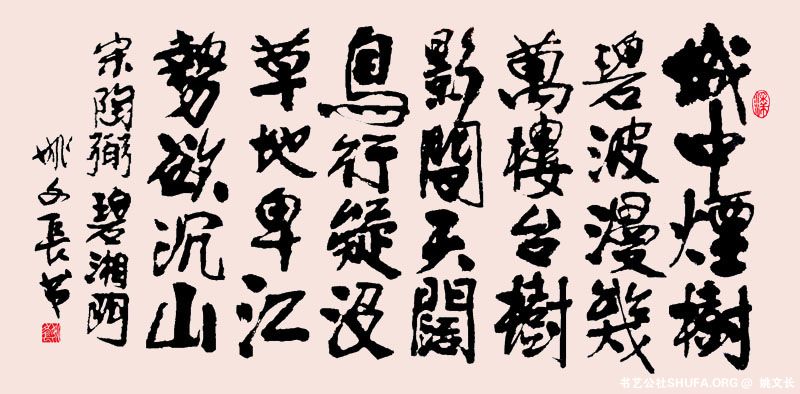 城中煙樹
碧波漫幾
萬樓台樹
影間天闊
鳥行疑没
草地卑江
勢欲沉山
宋陶弼碧湘門
姚文長书
书艺公社SHUFA.ORG @ 姚文长